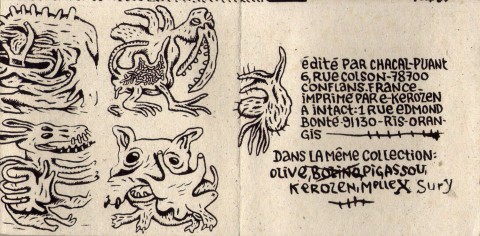 édité PAR CHACAL-PUANT
6, RUE COLSON-78700
CONFLANS. FRANCE-
IMPRIMÉ PAR e-KEROZEN
A INTACT: 1 RUE EDMOND
BONTÉ 91130-RIS-ORAN-
GIS
DANS LA MÊME COLLECTION:
OLIVE, PIGASSOU,
KEROZEN, MOLLEX SURY